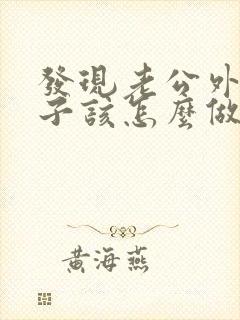 發現老公外
子該怎麼做
黃海燕